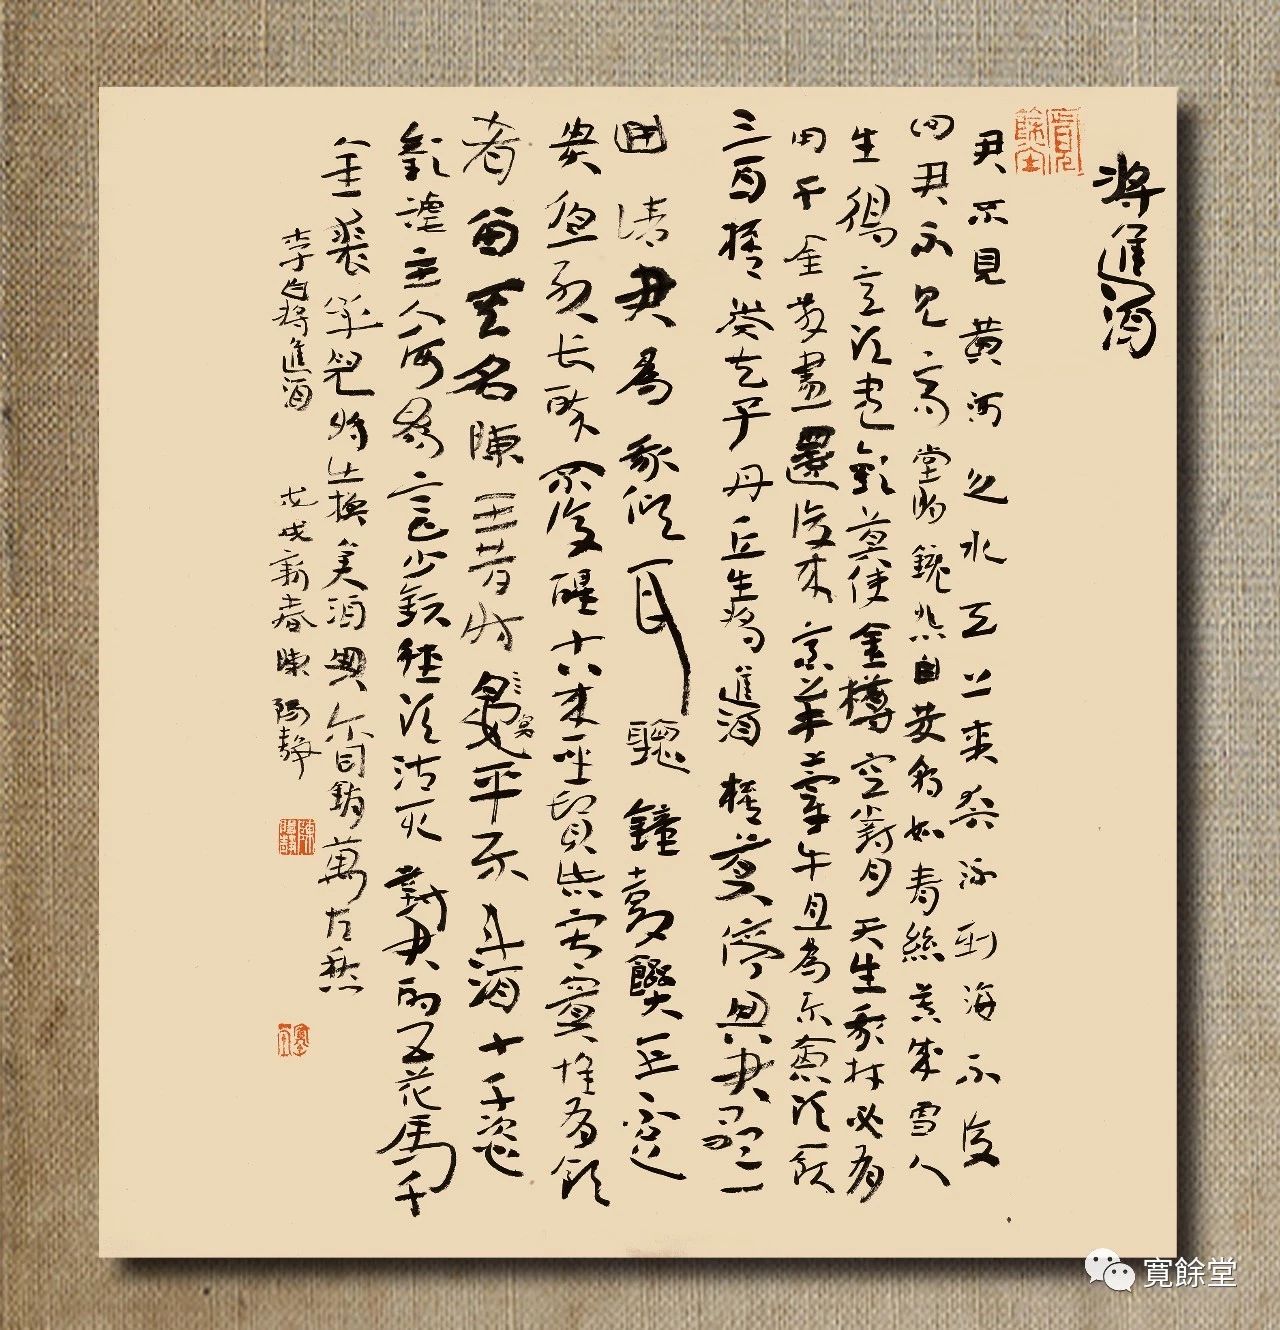 將進酒
寬餘堂
君不見黃河之水天上來奔流到海不復
回君不見高堂明鏡悲白髮朝如青絲暮成雪人
生得意須盡歡莫使金樽空對月天生我材必有
用千金散盡還復來烹羊宰牛且為樂會須一飲
三百杯岑夫子丹丘生將進酒杯莫停與君歌一
曲請君為我傾耳聽鐘鼓饌玉不足
貴但願長醉不復醒古來聖賢皆寂寞惟有飲
者留其名陳王昔時宴平樂斗酒十千恣
歡謔主人何為言少錢徑須沽取對君酌五花馬千
金裘呼兒將出換美酒與爾同銷萬古愁
李白將進酒 戊戌新春陳陽靜
寬餘堂